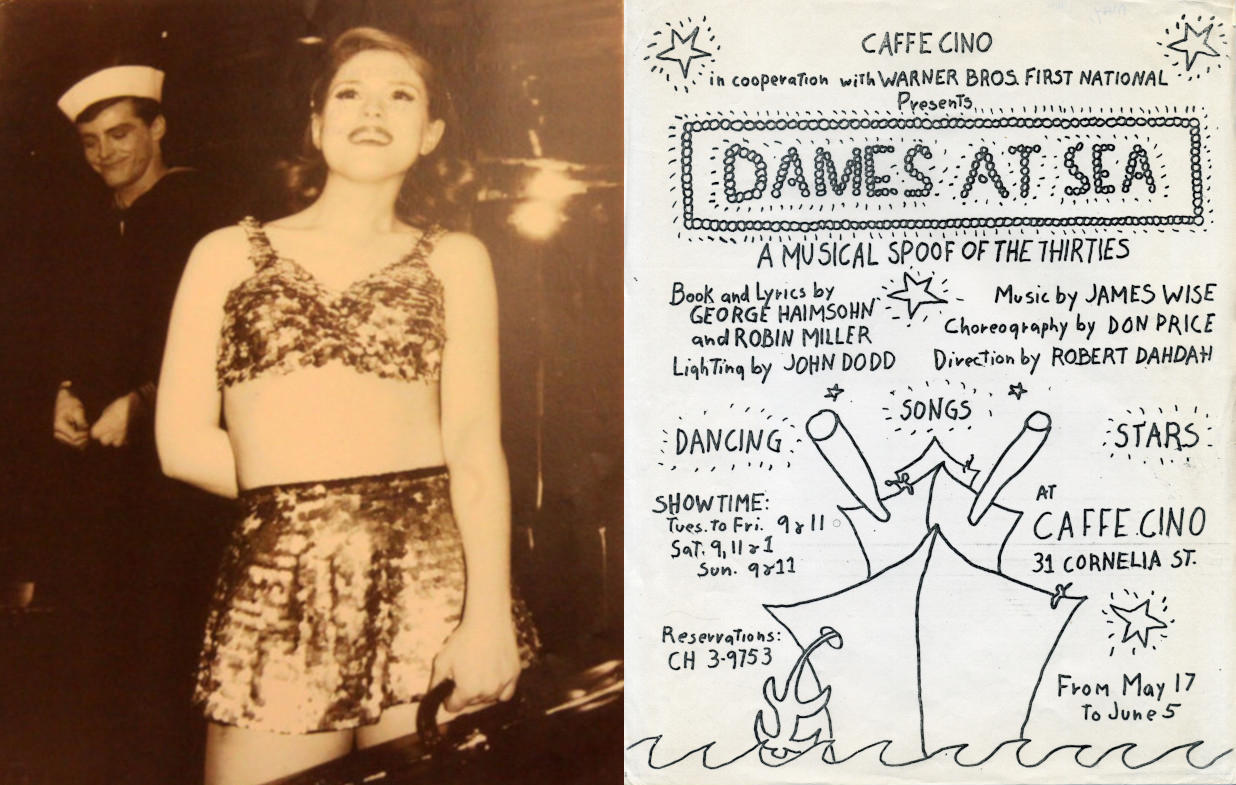 CAFFE CINO
in cooperation with WARNER BROS. FIRST NATIONAL
Presents
DAMES AT SEA
A MUSICAL SPOOF OF THE THIRTIES
Book and Lyrics by
GEORGE HAIMSOHN
and ROBIN MILLER
Lighting by JOHN DODD
Music by JAMES WISE
Choreography by DON PRICE
Direction by ROBERT DAHDAH
DANCING
SONGS
STARS
SHOWTIME:
Tues. to Fri. 9 & 11
Sat. 9, 11 & 1
Sun. 9 & 11
AT
CAFFE CINO
31 CORNELIA ST.
Reservations:
CH 3-9753
From May 17
To June 5